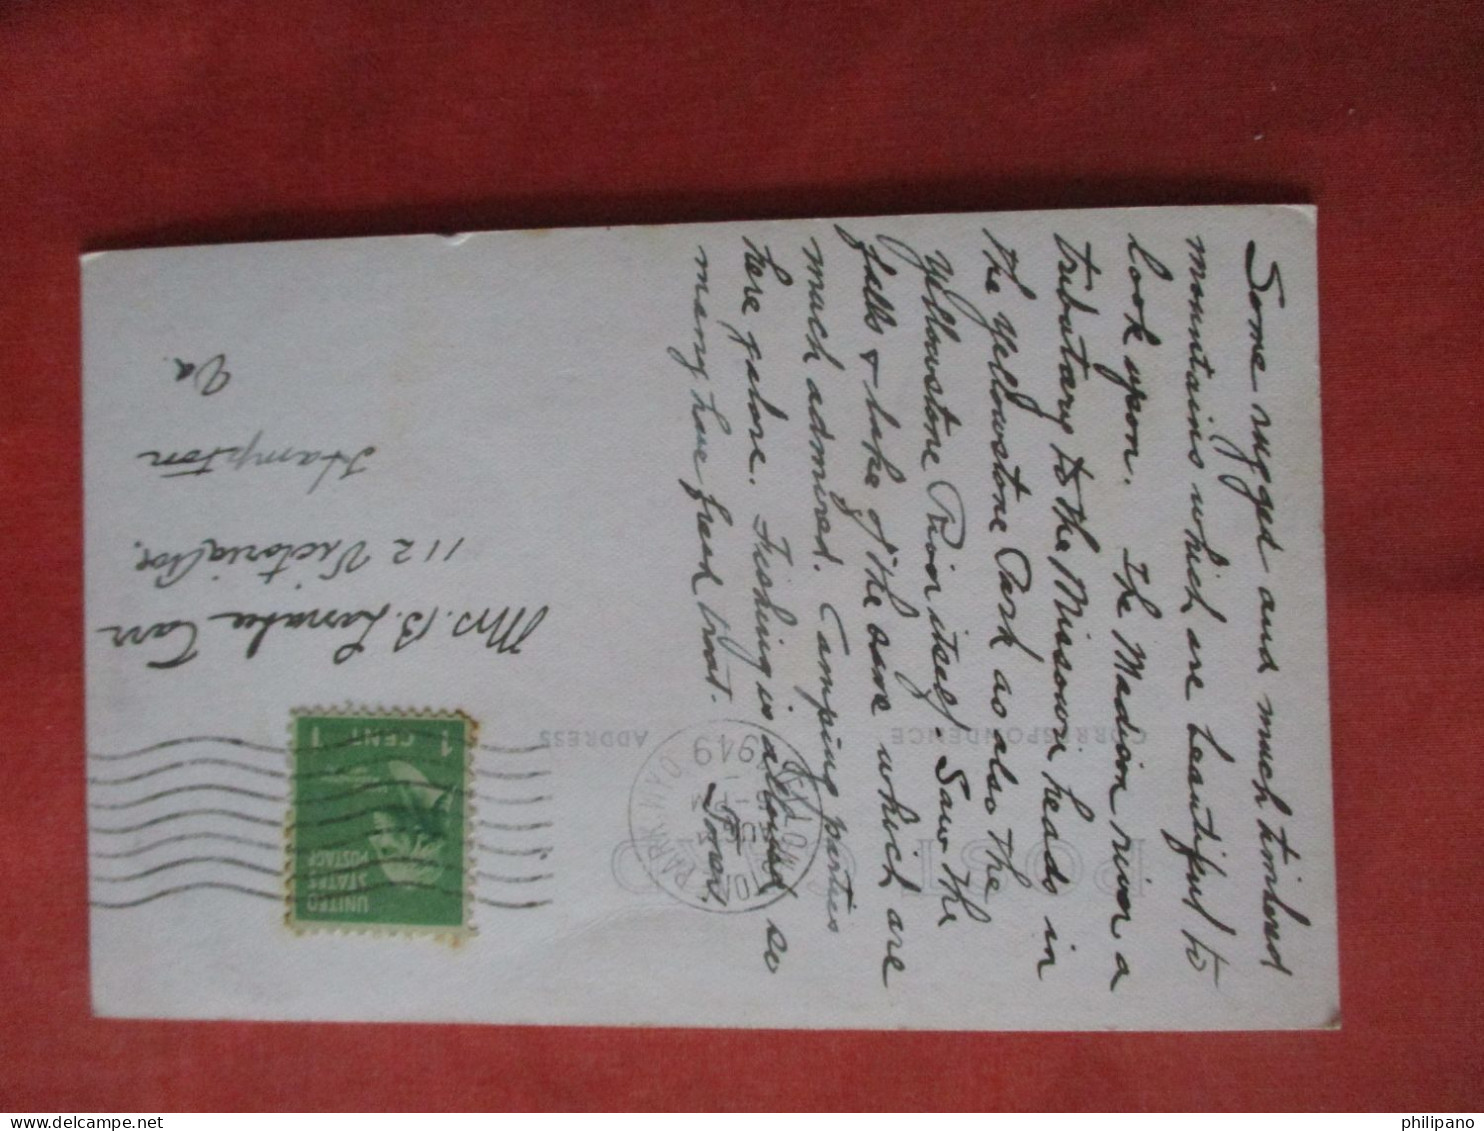 Some rugged and much timbered
mountains which are beautiful to
look upon. The Madison river a
tributary to the Missouri heads in
the Yellowstone Park as also the
Yellowstone River itself. Saw the
falls & lake of the same which are
much admired. Camping parties
here galore. Fishing is allowed so
many have fresh trout.
POST CARD
CORRESPONDENCE
ADDRESS
PARK, WYO.
PM
1949
UNITED
STATES
POSTAGE
1 CENT 1
Mrs. B. Tarr
112 Victoria Ave.
Hampton
Va.
philipano